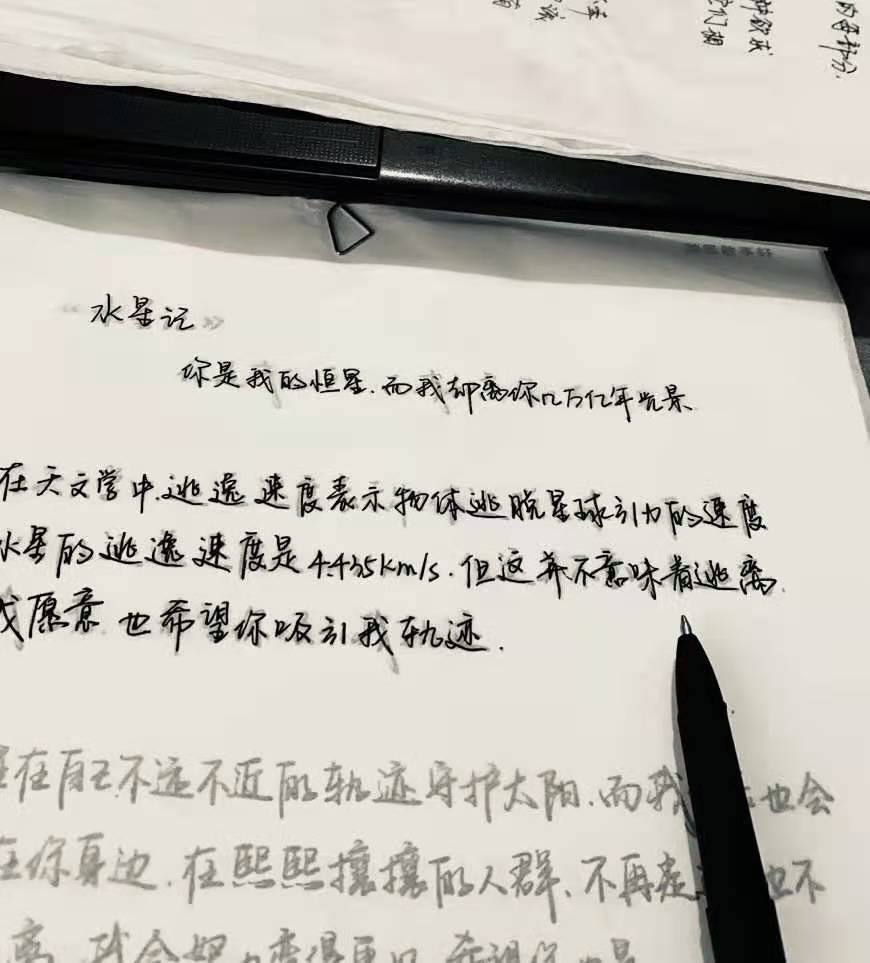 的每部分.
种欲求
它们相
《水星记》
你是我的恒星.而我却离你几万亿年光景.
在天文学中.逃逸速度表示物体逃脱星球引力的速度
水星的逃逸速度是4.435km/s.但这并不意味着逃离.
我愿意.也希望你吸引我轨迹.
在自己不远不近的轨迹守护太阳.而我 也会
在你身边.在熙熙攘攘的人群.不再 也不
离